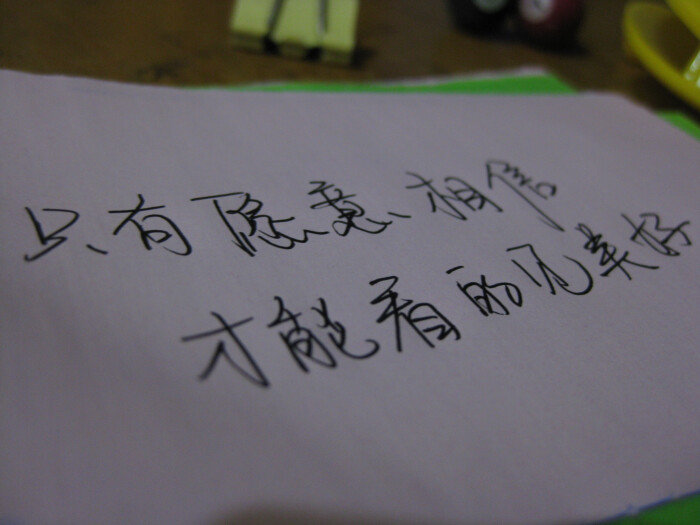 只有愿意相信
才能看的见美好